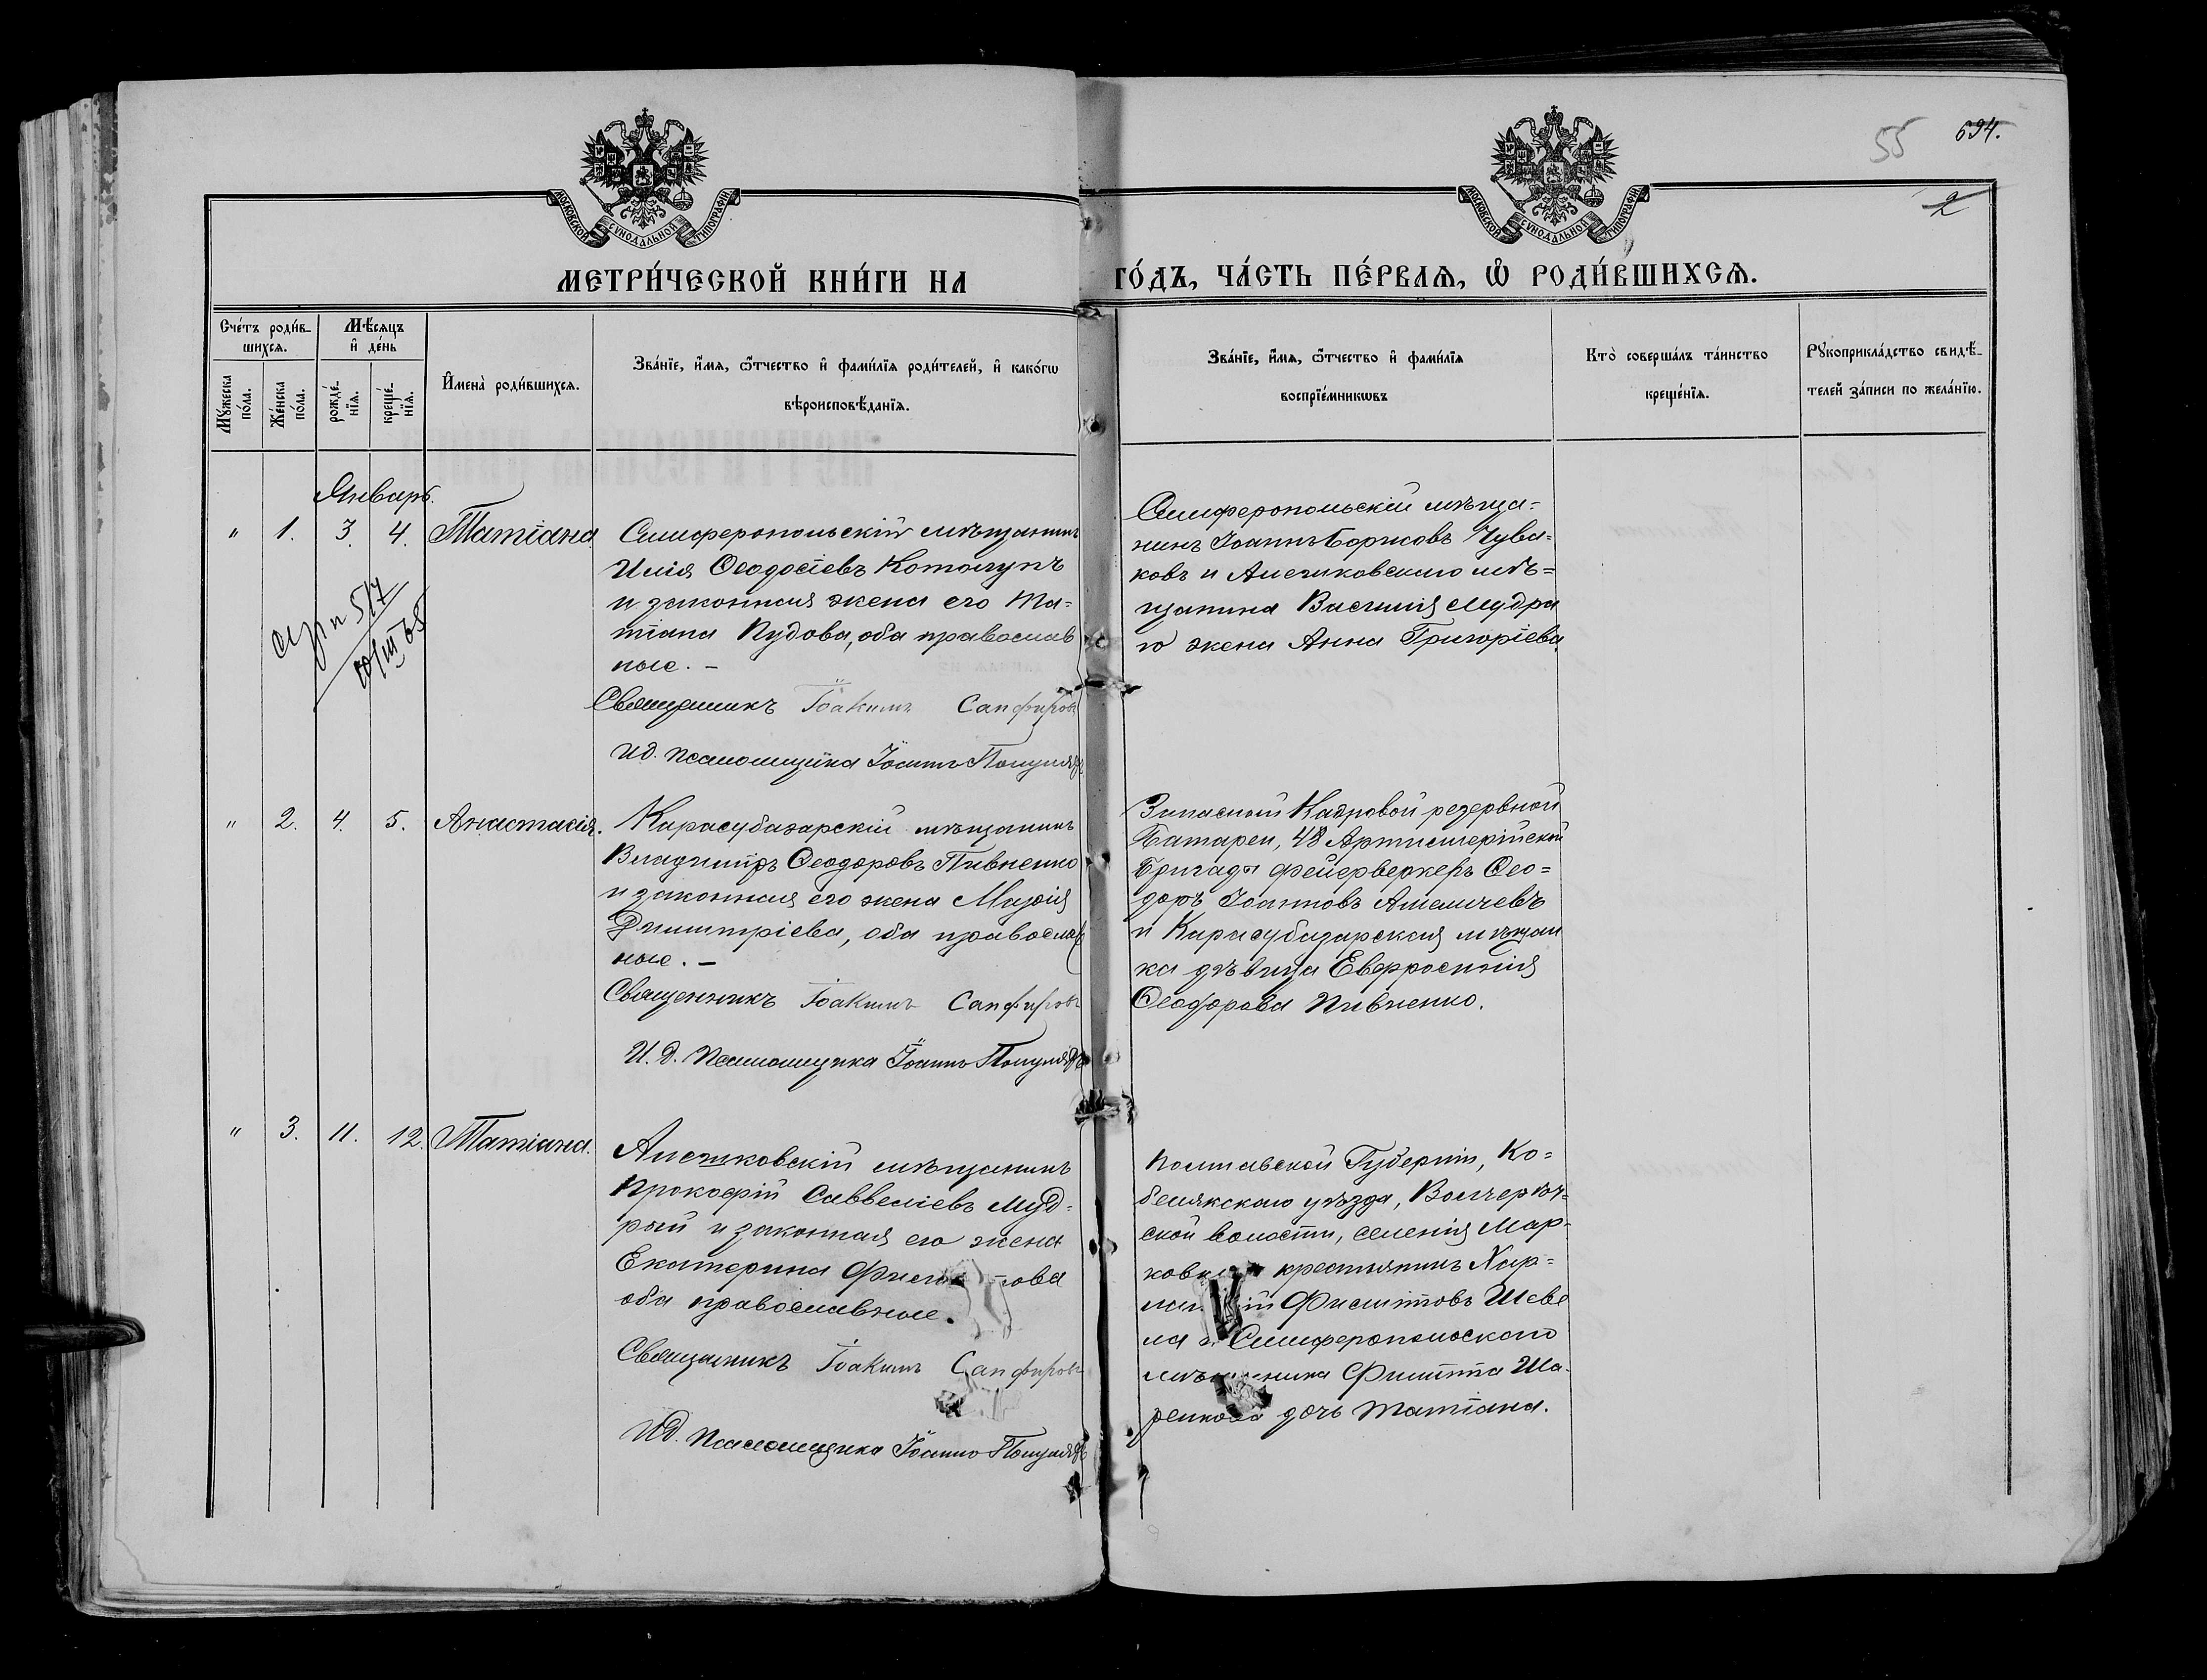 55 694.
2
МОСКОВСКОЙ СѴНОДАЛЬНОЙ ТИПОГРАФІИ
МОСКОВСКОЙ СѴНОДАЛЬНОЙ ТИПОГРАФІИ
МЕТРИ́ЧЕСКОЙ КНИ́ГИ НА ГО́ДЪ, ЧА́СТЬ ПЕ́РВАѦ, Ѡ҆ РОДИ́ВШИХСѦ.
Сче́тъ роди́в-
шихсѧ.
Мꙋ́жеска по́ла.
Же́нска по́ла.
Мѣ́сяцъ
и҆ де́нь
рожде́-
нїѧ.
креще́-
нїѧ.
И҆мена̀ роди́вшихсѧ.
Зва́нїе, и҆́мѧ, ѻ҆́тчество и҆ фами́лїѧ роди́телей, и҆ како́гѡ
вѣроисповѣ́данїѧ.
Зва́нїе, и҆́мѧ, ѻ҆́тчество и҆ фами́лїѧ
воспрїе́мникѡвъ
Кто̀ соверша́лъ та́инство
креще́нїѧ.
Рꙋкоприкла́дство свидѣ́-
телей за́писи по жела́нїю.
Январь.
" 1. 3. 4. Татіана.
Симферопольскій мѣщанинъ
Илія Ѳеодосіевъ
и законная жена его Та=
тіана Пудова, оба православ
ные. -
Священникъ Іоакимъ Сапфировъ
ИД. Псаломщика Іоаннъ
Симферопольскій мѣща=
нинъ Іоаннъ Борисовъ Чува=
ковъ и Алешковскаго мѣ=
щанина Василія Мудра
го жена Анна Григоріева.
" 2. 4. 5. Анастасія.
Карасубазарскій мѣщанинъ
Владиміръ Ѳеодоровъ Пивненко
и законная его жена Марія
Димитріева, оба православ
ные. -
Священникъ Іоакимъ Сапфировъ
И.Д. Псаломщика Іоаннъ
Запасный Кадровой резервной
Батареи, 48 Артиллерійской
Бригады фейерверкеръ Ѳео=
доръ Іоанновъ
и Карасубазарская мѣщан
ка дѣвица Евфросинія
Ѳеодорова Пивненко.
" 3. 11. 12. Татіана.
Алешковскій мѣщанинъ
Прокофій Савеліевъ Муд=
рый и законная его жена
Екатерина
оба православные.
Священникъ Іоакимъ Сапфировъ
ИД. Псаломщика Іоаннъ
Полтавской Губерніи, Ко=
белякскаго уѣзда,
ской волости, селенія Мар-
крестьянинъ Хар=
Филипповъ Шеве
ля и Симферопольскаго
Филиппа
дочь Татіана.